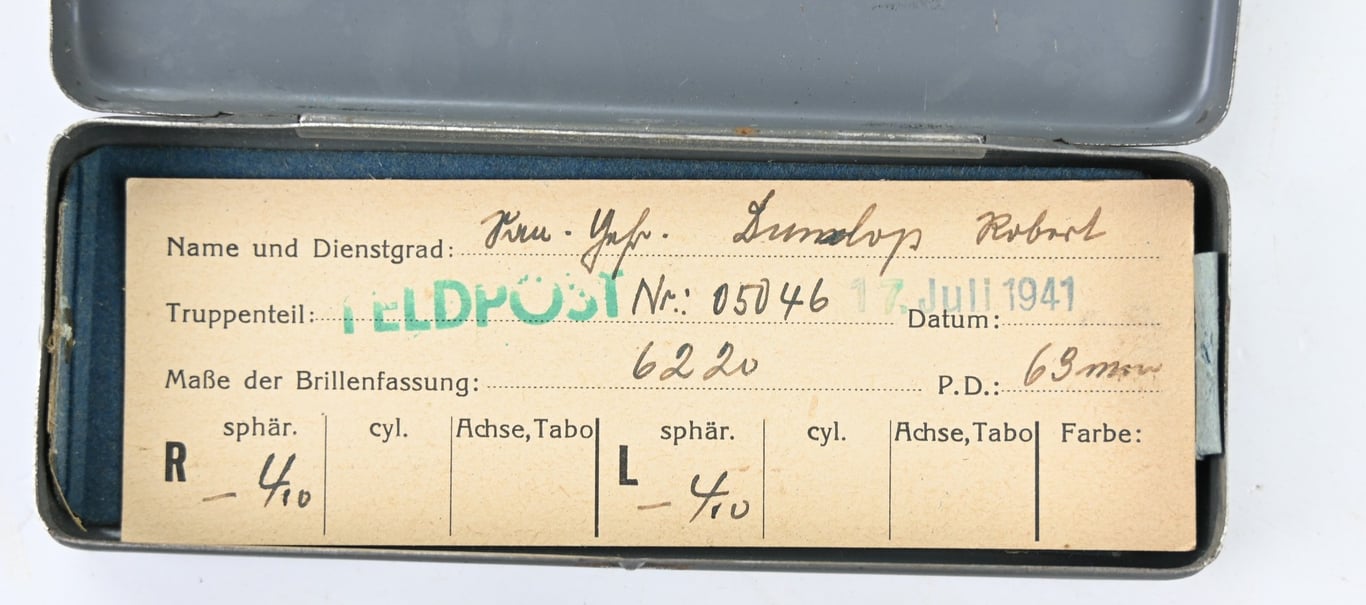 Name und Dienstgrad: San. Gefr. Dunlop Robert
Truppenteil: FELDPOST Nr.: 05046 Datum: 17. Juli 1941
Maße der Brillenfassung: 6220 P.D.: 63 mm
sphär. cyl. Achse,Tabo sphär. cyl. Achse,Tabo Farbe:
R - 4,10 L - 4,10